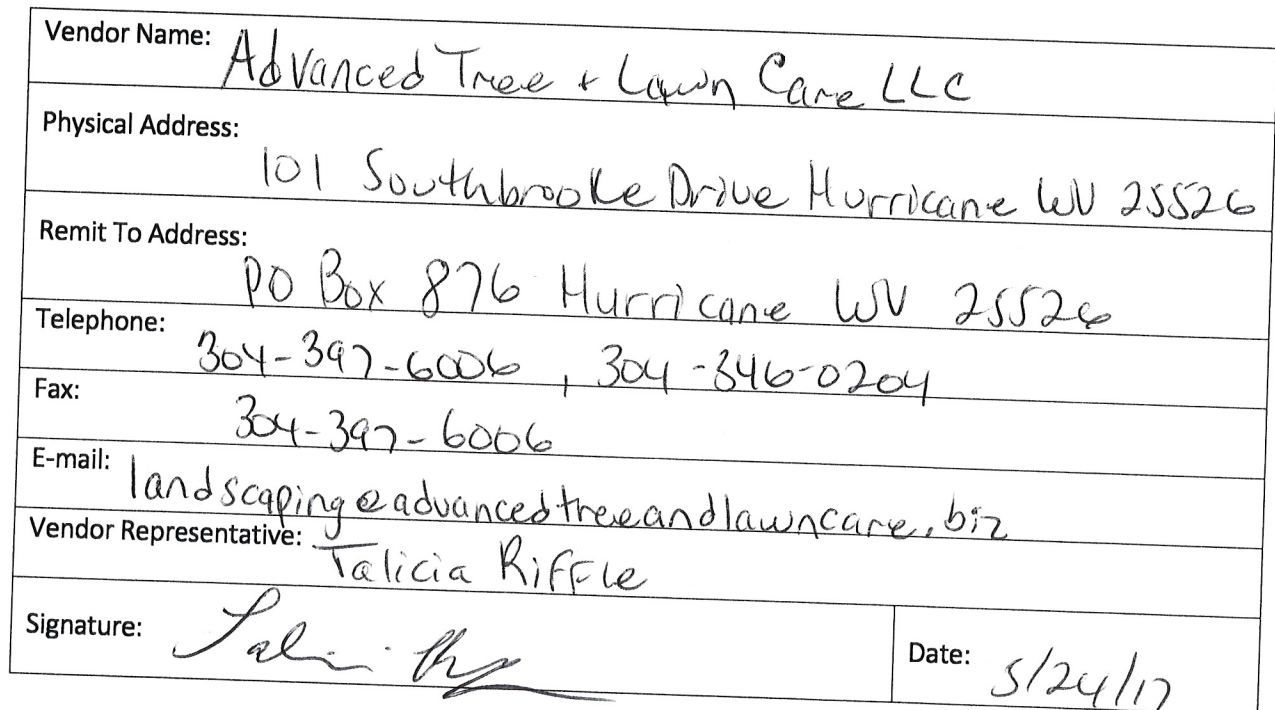 Vendor Name: Advanced Tree + Lawn Care LLC
Physical Address:
101 Southbrooke Drive Hurricane WV 25526
Remit To Address:
PO Box 876 Hurricane WV 25526
Telephone:
304-397-6006 , 304-346-0204
Fax:
304-397-6006
E-mail: landscaping@advancedtreeandlawncare.biz
Vendor Representative: Talicia Riffle
Signature:
Date: 5/24/17